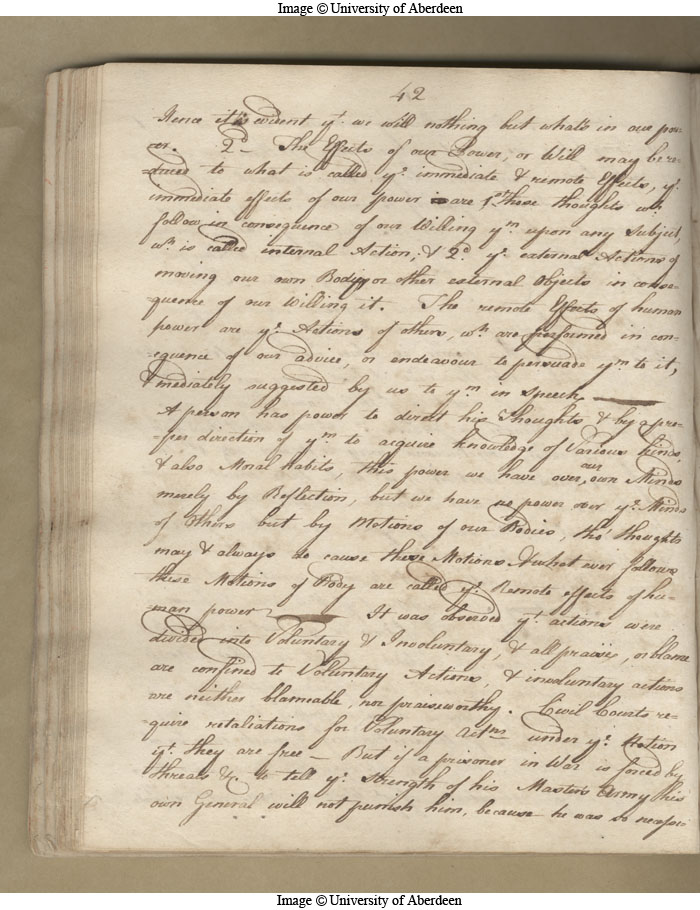 Image © University of Aberdeen
42
Hence it is evident yt we will nothing but what's in our pow-
er. 2d The Effects of our Power, or Will may be re-
duced to what is called ye immediate & remote Effects, ye
immediate effects of our power are 1st These thoughts wh
follow in consequence of our Willing ym upon any Subject,
wh is called internal Action, & 2d ye external Actions of
moving our own Body or other external Objects in conse-
quence of our Willing it. The remote Effects of human
power are ye Actions of others, wh are performed in con-
sequence of our advice, or endeavour to persuade ym to it,
mediately suggested by us to ym in speech
A person has power to direct his Thoughts & by a pro-
per direction of ym to acquire knowledge of Various kinds,
& also Moral habits, this power we have over our own Minds
merely by Reflection, but we have no power over ye Minds
of Others but by Motions of our Bodies, tho' thoughts
may & always do cause these Motions & what ever follows
these Motions of Body are called ye Remote effects of hu-
man power It was observed yt actions were
divided into Voluntary & Involuntary, & all praise, or blame
are confined to Voluntary Actions, & involuntary actions
are neither blameable, nor praiseworthy. Civil Courts re-
quire retaliations for Voluntary actns under ye Notion
yt they are free — But if a prisoner in War is forced by
threats &c to tell ye strength of his Masters Army his
own General will not punish him, because he was so
Image © University of Aberdeen